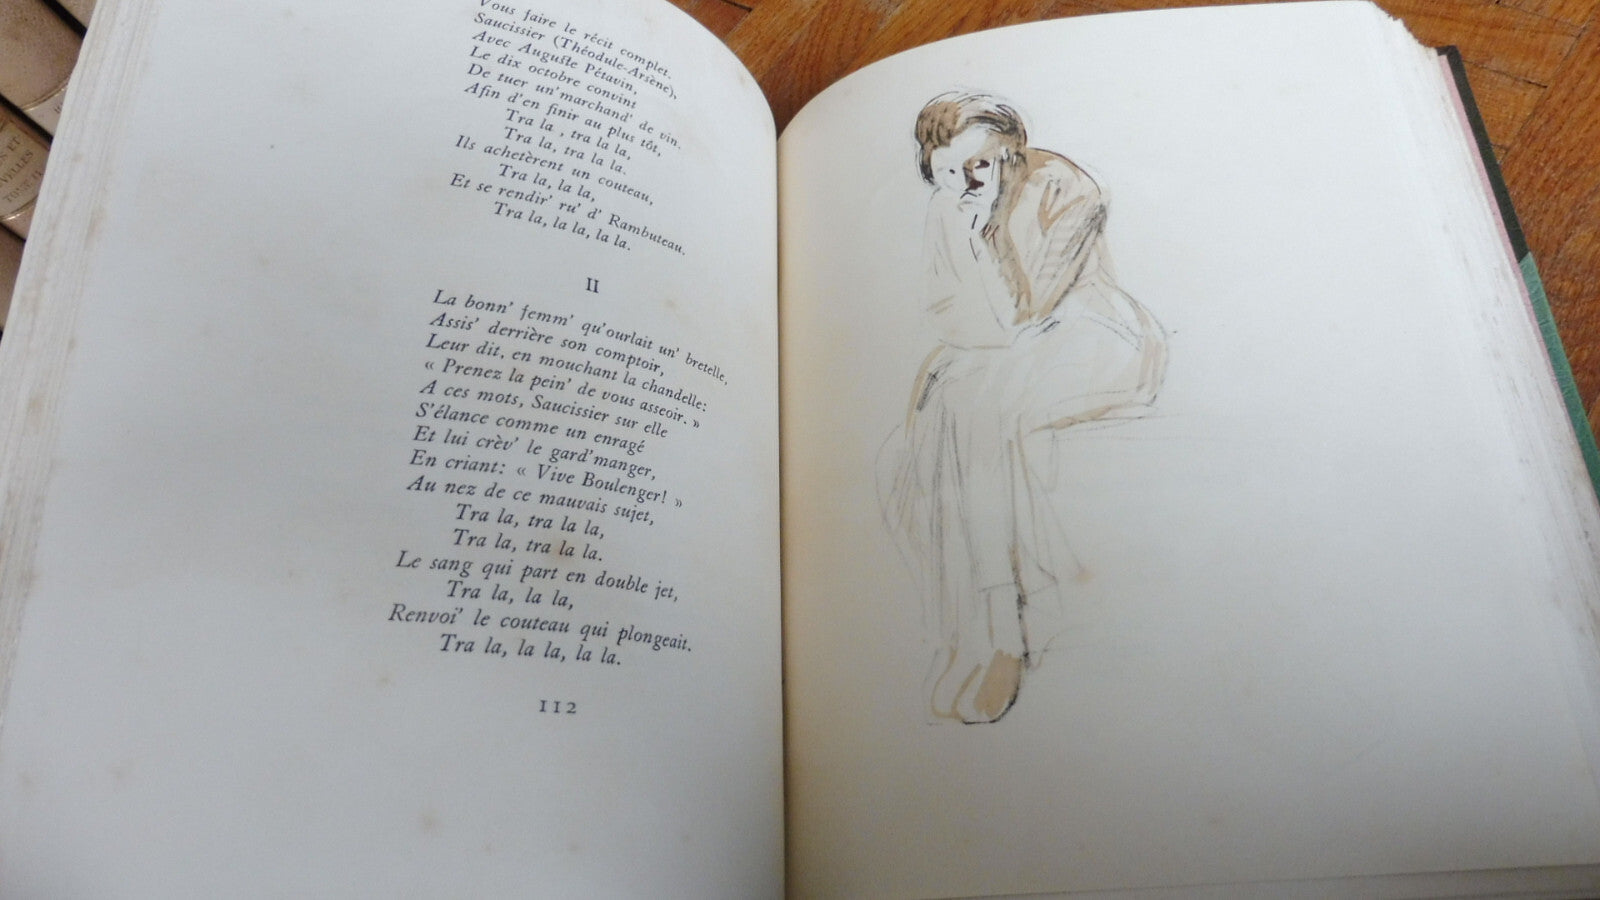 Vous faire le récit complet.
Saucissier (Théodule-Arsène),
Avec Auguste Pétavin,
Le dix octobre convint
De tuer un'marchand' de vin.
Afin d'en finir au plus tôt,
Tra la, tra la la,
Tra la, tra la la.
Ils achetèrent un couteau,
Tra la, la la,
Et se rendir' ru' d' Rambuteau.
Tra la, la la, la la.
II
La bonn' femm' qu'ourlait un' bretelle,
Assis' derrière son comptoir,
Leur dit, en mouchant la chandelle:
« Prenez la pein' de vous asseoir. »
A ces mots, Saucissier sur elle
S'élance comme un enragé
Et lui crèv' le gard'manger,
En criant: « Vive Boulenger! »
Au nez de ce mauvais sujet,
Tra la, tra la la,
Tra la, tra la la.
Le sang qui part en double jet,
Tra la, la la,
Renvoi' le couteau qui plongeait.
Tra la, la la, la la.
112